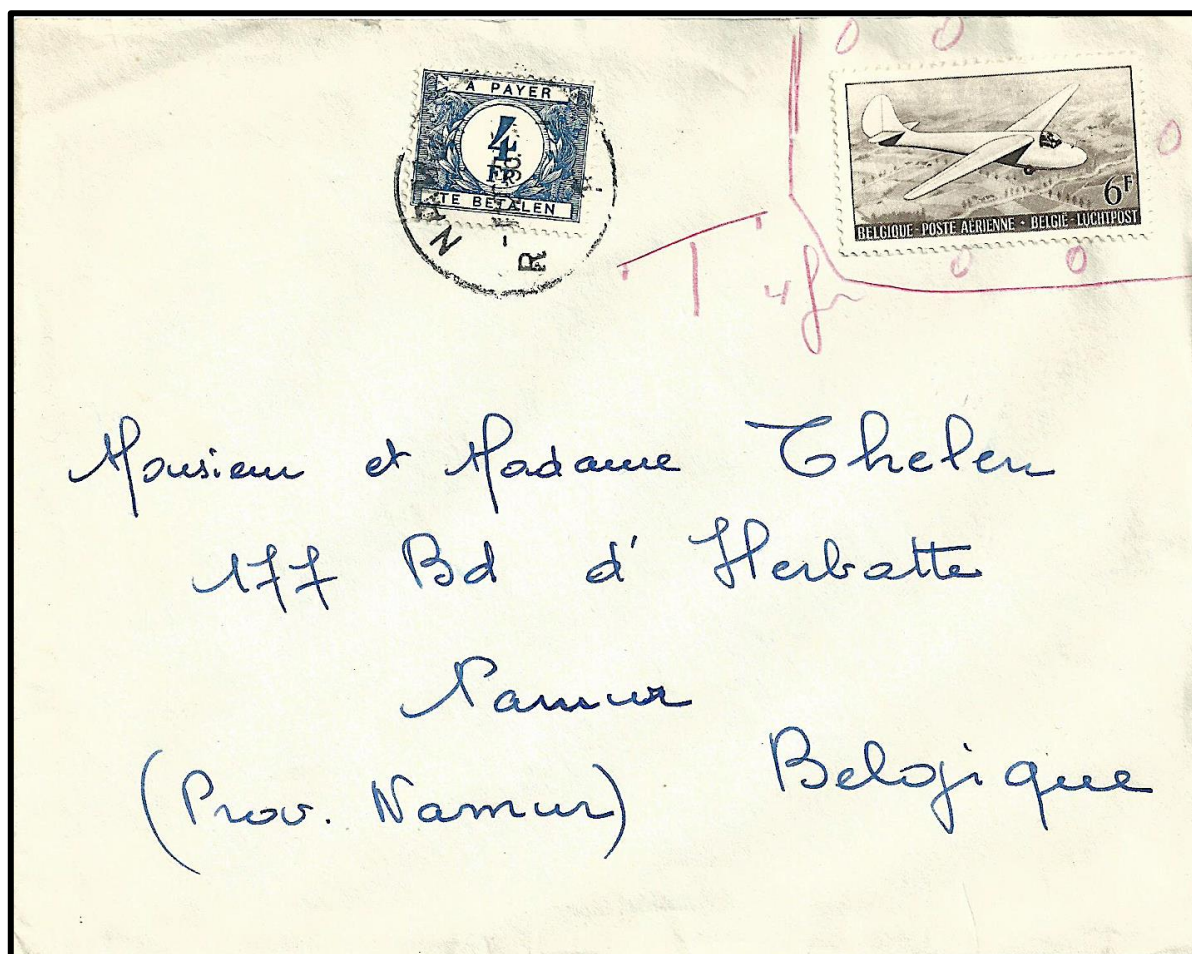 A PAYER
4
FR
TE BETALEN
6F
BELGIQUE - POSTE AÉRIENNE · BELGIË - LUCHTPOST
0 0
0
0 0
T 4 fr
Monsieur et Madame Thelen
177 Bd d'Herbatte
Namur
(Prov. Namur) Belgique